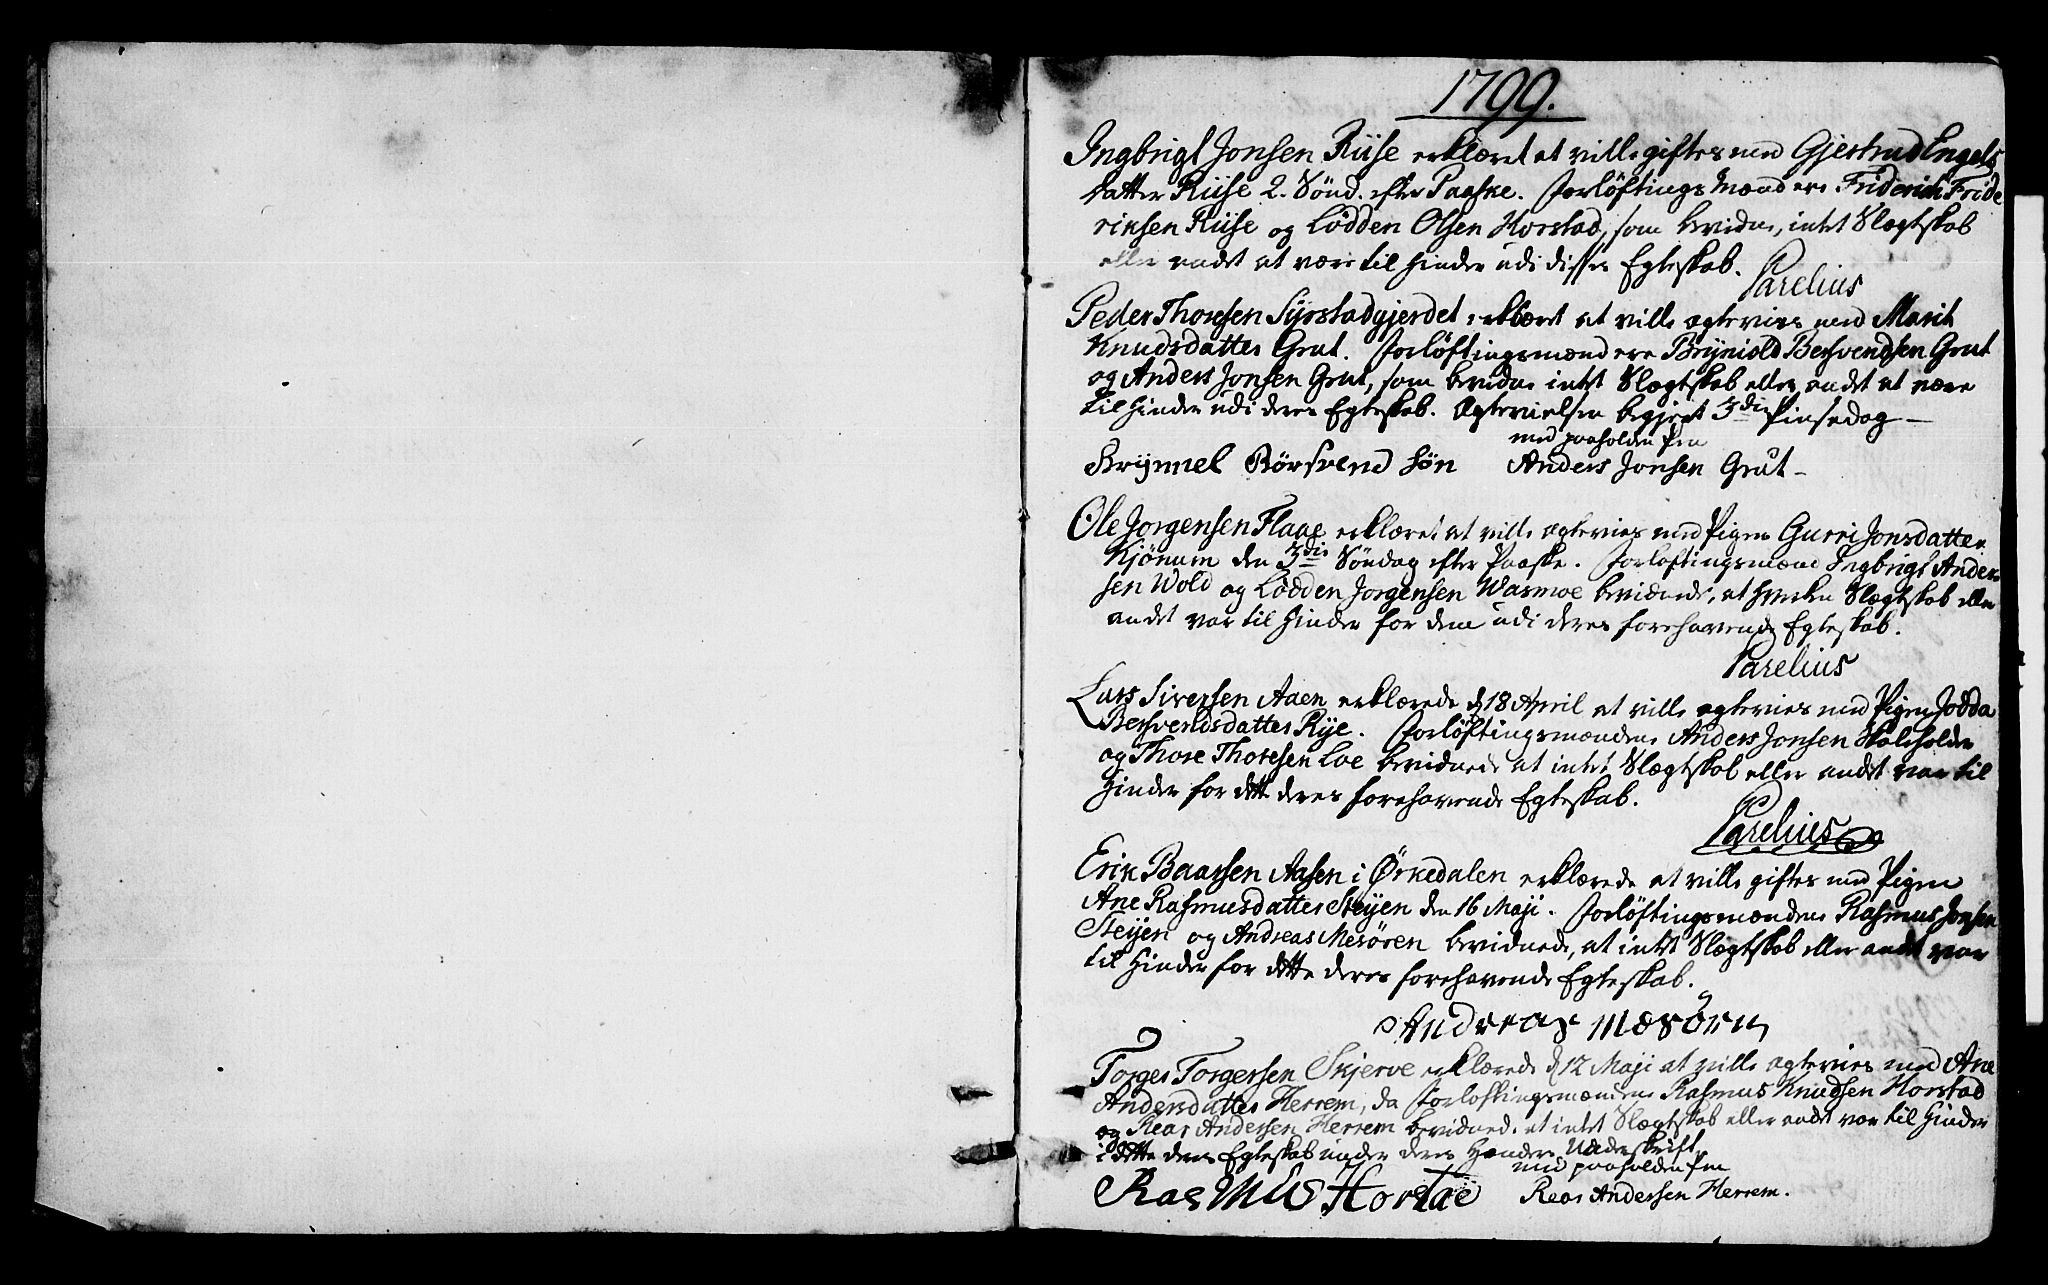 1799.
Ingbrigt Jonsen Riise erklæret at ville giftes med Gjertrud Engels
datter Riise 2. Sønd. efter Paaske. Forløftings Mænd ere Friderich Fride
riksen Riise og Lodden Olsen Horstad, som bevidne, intet Slægtskab
eller andet at være til Hinder udi disses Egteskab.
Parelius
Peder Thoresen Syrstadgjerdet erklæret at ville ægtevies med Marit
Knudsdatter Grut. Forløftingsmænd ere Brynild Bersvendsen Grut
og Anders Jonsen Grut, som bevidne intet Slægtskab eller andet at være
til Hinder udi deres Egteskab. Ægtevielsen begjert 3die Pinsedag —
med paaholden Pen
Brynnel Börsvend sön Anders Jonsen Grut —
Ole Jorgensen Flaae erklæret at ville ægtevies med Pigen Gurri Jonsdatter
Kjønum den 3die Søndag efter Paaske. Forløftingsmænd Ingbrigt Ander
sen Wold og Lodden Jorgensen Wasmoe bevidnede, at hverken Slægtskab eller
andet var til Hinder for dem udi deres forehavende Egteskab.
Parelius
Lars Sivertsen Aaen erklærede d 18 April at ville ægtevies med Pigen Jodda
Bersvendsdatter Rye. Forløftingsmændene Anders Jonsen Skoleholder
og Thore Thoresen Loe bevidnede at intet Slægtskab eller andet var til
Hinder for dette deres forehavende Egteskab.
Parelius
Erik Baarsen Aasen i Ørkedalen erklærede at ville giftes med Pigen
Ane Rasmusdatter Steyen den 16 Maji. Forløftingsmændene Rasmus Jonsen
Steyen og Andreas Mesøren bevidnede, at intet Slægtskab eller andet var
til Hinder for dette deres forehavende Egteskab.
Andreas Mæsören
Torger Torgersen Skjerve erklærede d 12 Maji at ville ægtevies med Ane
Andersdatter Herrem, da Forløftingsmændene Rasmus Knudsen Horstad
og Rear Andersen Herrem bevidnede at intet Slægtskab eller andet var til Hinder
i dette deres Egteskab under deres Hænders Underskrift.
med paaholden Pen
Rasmus Horstad Rear Andersen Herrem.